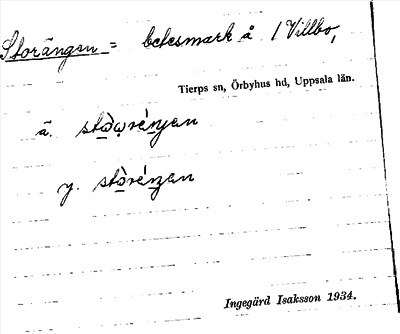 Storängen = betesmark å 1 Villbo,
Tierps sn, Örbyhus hd, Uppsala län.
ä.
y.
Ingegärd Isaksson 1934.